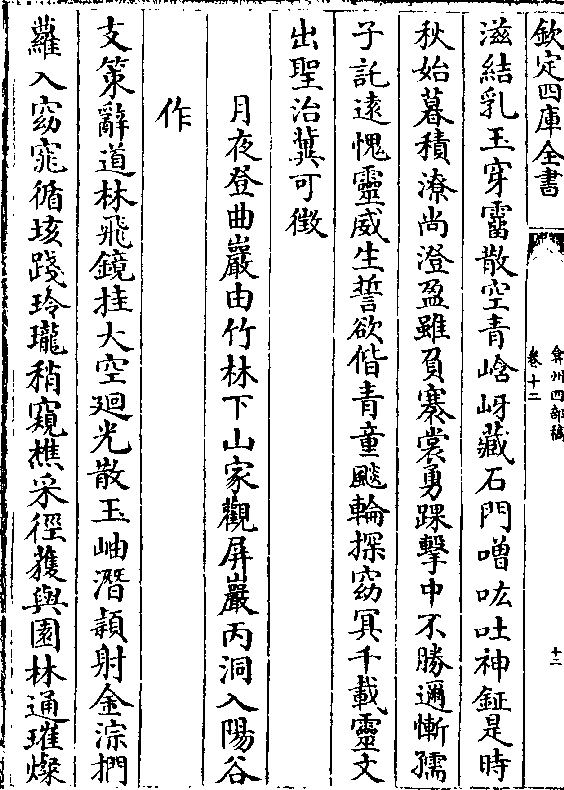 欽定四庫全書
弇州四部稿
卷十二
十二
滋結乳玉穿霤散空青峆岈藏石門噌吰吐神鉦是時
秋始暮積潦尚澄盈雖負褰裳勇踝擊中不勝邇慚孺
子託遠愧靈威生誓欲偕青童飇輪探窈冥千載靈文
出聖治冀可徴
月夜登曲巖由竹林下山家觀屏巖丙洞入陽谷
作
支策辭道林飛鏡挂大空廻光散玉岫潛潁射金淙捫
蘿入窈窕循垓踐玲瓏稍窺樵采徑蒦與園林通璀燦